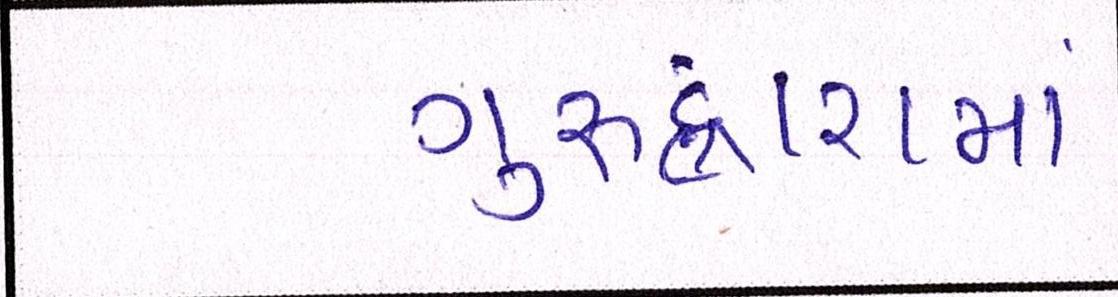 ગુરુદ્વારામાં